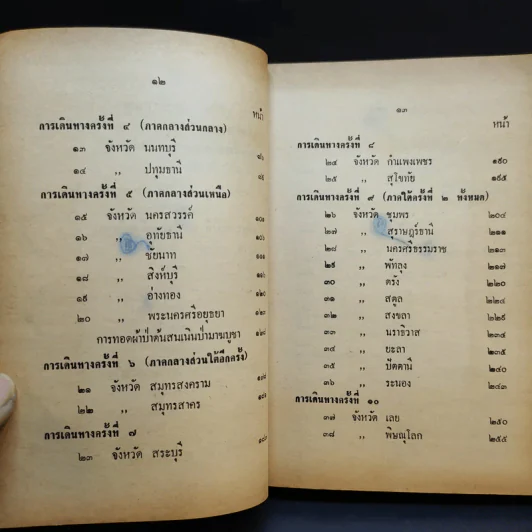 ๑๒
หน้า
การเดินทางครั้งที่ ๔ (ภาคกลางส่วนกลาง)
๑๓ จังหวัด นนทบุรี
๑๔ ,, ปทุมธานี
การเดินทางครั้งที่ ๕ (ภาคกลางส่วนเหนือ)
๑๕ จังหวัด นครสวรรค์
๑๖ ,, อุทัยธานี
๑๗ ,, ชัยนาท
๑๘ ,, สิงห์บุรี
๑๙ ,, อ่างทอง
๒๐ ,, พระนครศรีอยุธยา
การทอดผ้าป่าต้นสนเนินป่ามาฆบูชา
การเดินทางครั้งที่ ๖ (ภาคกลางส่วนใต้อีกครั้ง)
๒๑ จังหวัด สมุทรสงคราม
๒๒ ,, สมุทรสาคร
การเดินทางครั้งที่ ๗
๒๓ จังหวัด สระบุรี
๑๓
หน้า
การเดินทางครั้งที่ ๘
๒๔ จังหวัด กำแพงเพชร ๑๙๐
๒๕ ,, สุโขทัย ๑๙๕
การเดินทางครั้งที่ ๙ (ภาคใต้ครั้งที่ ๒ ทั้งหมด)
๒๖ จังหวัด ชุมพร ๒๐๔
๒๗ ,, สุราษฎร์ธานี ๒๑๑
๒๘ ,, นครศรีธรรมราช ๒๑๓
๒๙ ,, พัทลุง ๒๑๗
๓๐ ,, ตรัง ๒๒๐
๓๑ ,, สตูล ๒๒๔
๓๒ ,, สงขลา ๒๒๙
๓๓ ,, นราธิวาส ๒๓๔
๓๔ ,, ยะลา ๒๓๕
๓๕ ,, ปัตตานี ๒๔๐
๓๖ ,, ระนอง ๒๔๓
การเดินทางครั้งที่ ๑๐
๓๗ จังหวัด เลย ๒๕๐
๓๘ ,, พิษณุโลก ๒๕๕